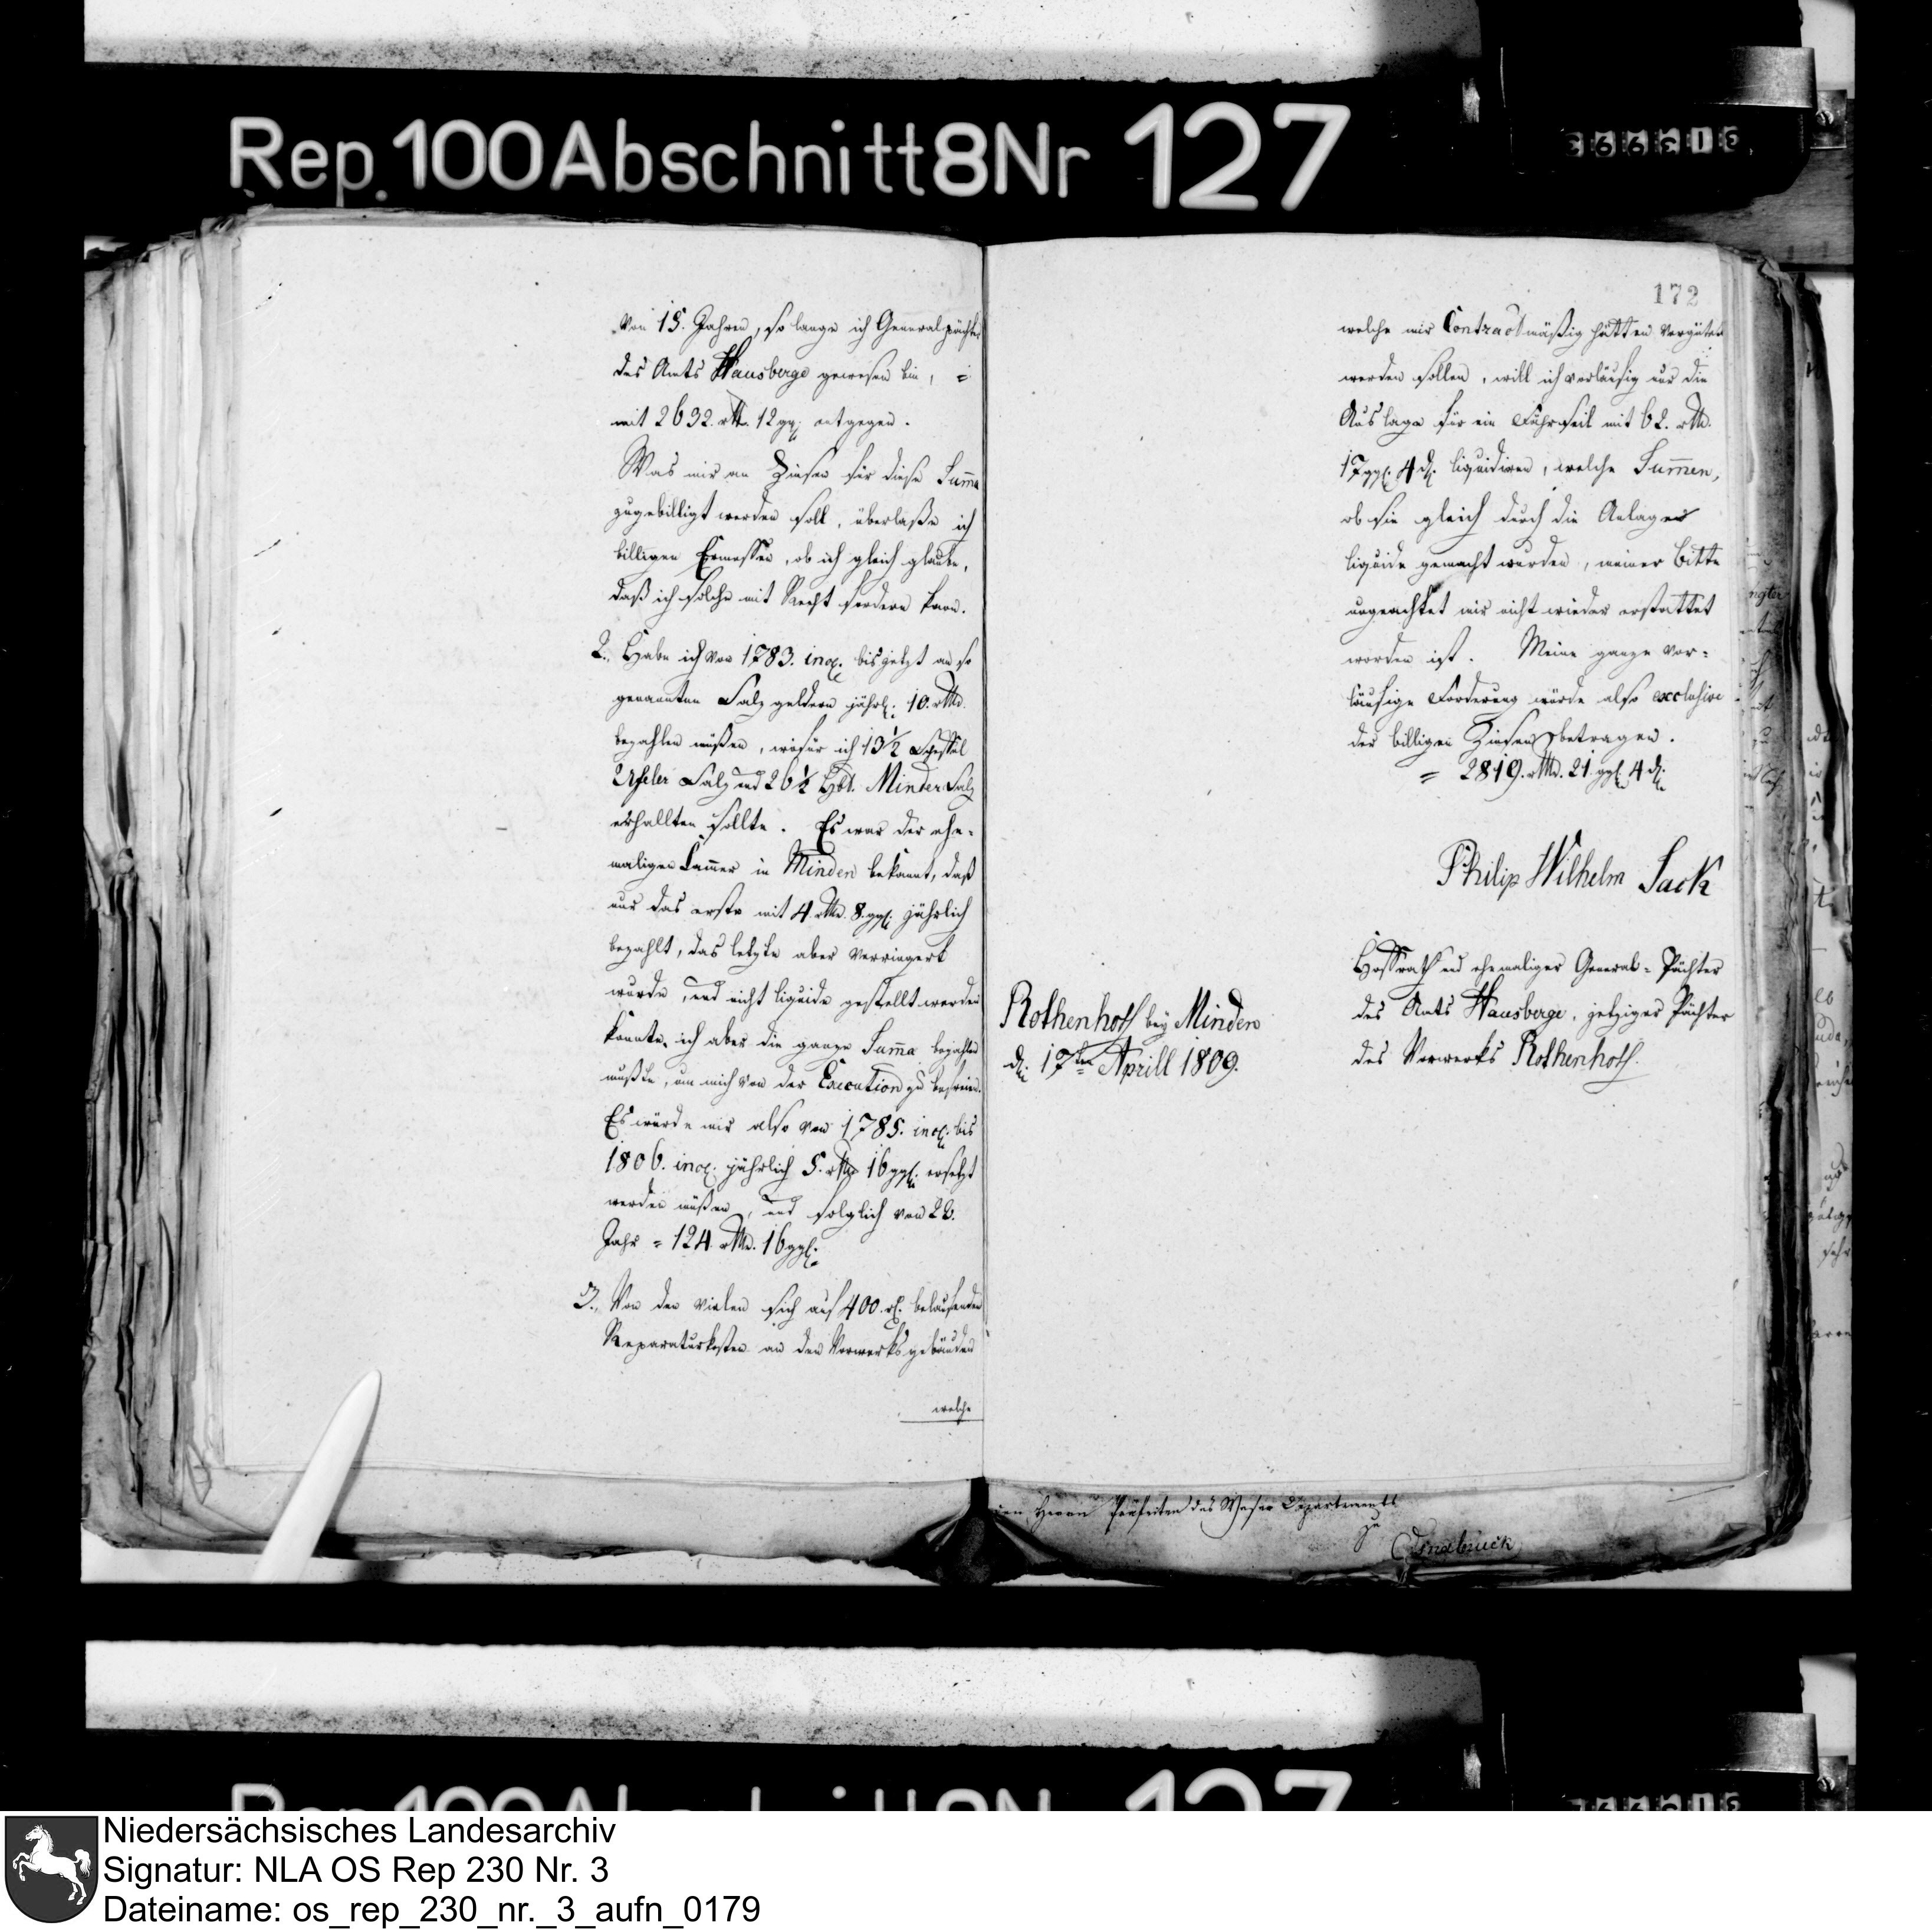 Rep. 100 Abschnitt 8 Nr 127
von 15. Jahren, so lange ich Generalpächter
des Amts Hausberge gewesen bin, =
mit 2632. rthl. 12 ggl. entgegen.
Was mir an Zinsen für diese Sum̄a
zugebilligt werden soll, überlaße ich
billigen Ermessen, ob ich gleich glaube,
daß ich solche mit Recht fordern kann.
2., Habe ich von 1783. incl. bis jetzt an so
genannten Salz geldern jährl. 10. rthlr.
bezahlen müßen, wofür ich 13½ Scheffel
Ufeler Salz und 26½ Hbt. Minder Salz
erhallten sollte. Es war der ehe-
maligen Cam̄er in Minden bekannt, daß
nur das erste mit 4. rthlr. 8. ggl. jährlich
bezahlt, das letzte aber verringert
wurde, und nicht liquide gestellt werden
konnte, ich aber die ganze Sum̄a bezahlen
mußte, um mich von der Execution zu befreien.
Es würde mir also von 1785. incl. bis
1806. incl. jährlich 5. rthlr. 16 ggl. ersetzt
werden müßen, und folglich von 22.
Jahr = 124. rthlr. 16 ggl.
3., Von den vielen sich auf 400. rl. belaufenden
Reparaturkosten an den Vorwerksgebäuden
welche
172
welche mir Contractmäßig hätten vergütet
werden sollen, will ich vorläufig nur die
Auslage für ein Fährseil mit 62. rthlr.
17 ggl. 4 d. liquidiren, welche Sum̄en,
ob sie gleich durch die Anlagen
liquide gemacht wurden, meiner Bitte
ungeachtet mir nicht wieder erstattet
worden ist. Meine ganze vor-
läufige Forderung würde also exclusive
der billigen Zinsen betragen.
= 2819. rthlr. 21. ggl. 4 d.
Philip Wilhelm Sack
Hoffrath und ehemaliger General-Pächter
des Amts Hausberge, jetziger Pächter
des Vorwerks Rothenhoff.
Rothenhoff bey Minden
d. 17ten Aprill 1809.
den Herrn Präfecten des Weser Departements
zu
Osnabrück
Niedersächsisches Landesarchiv
Signatur: NLA OS Rep 230 Nr. 3
Dateiname: os_rep_230_nr._3_aufn_0179